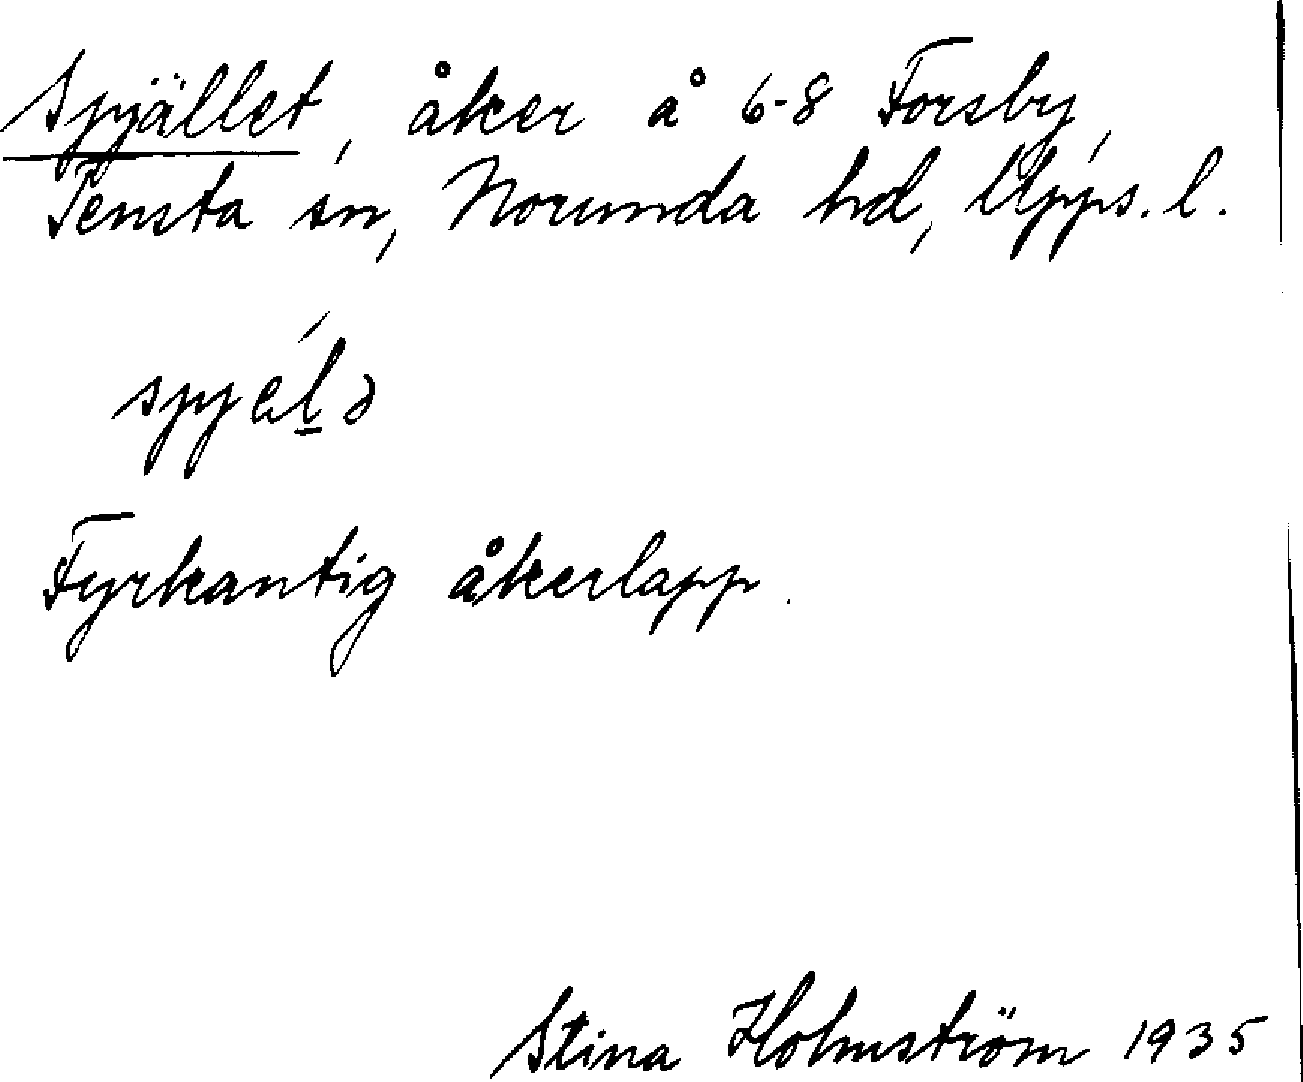 Spjället, åker å 6-8 Forsby,
Tensta sn, Norunda hd, Upps. l.
Fyrkantig åkerlapp.
Stina Holmström 1935